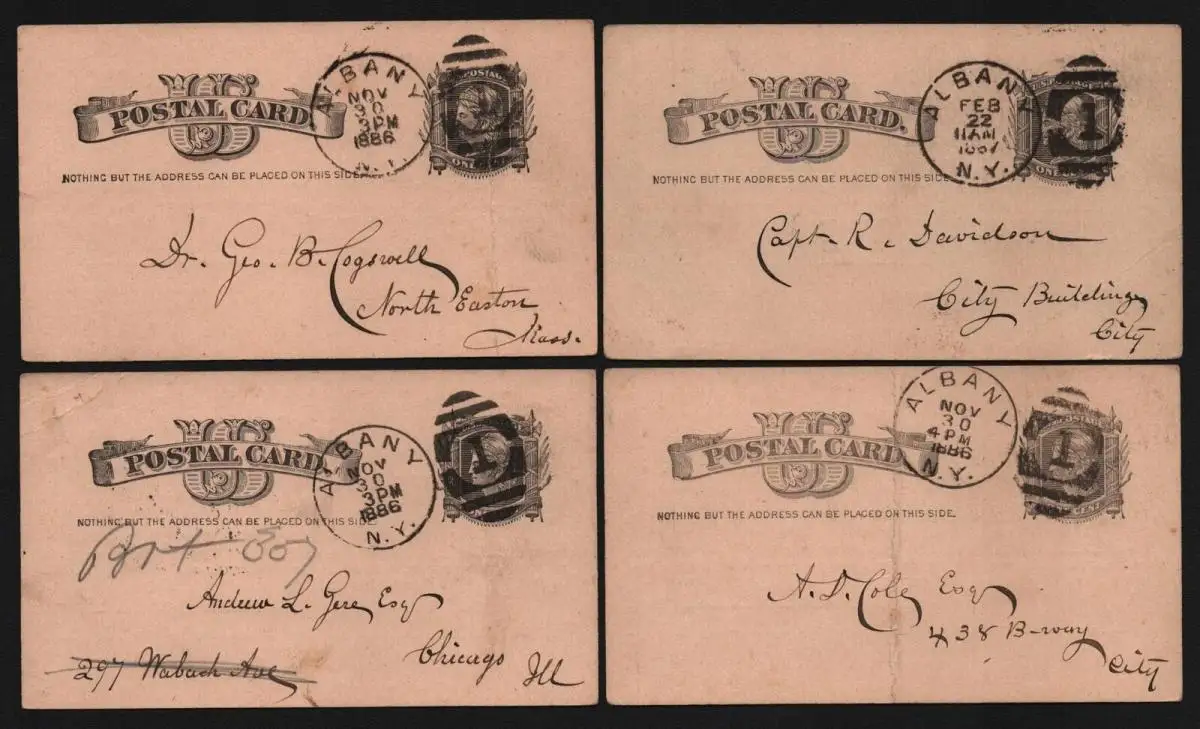 US
POSTAL CARD.
NOTHING BUT THE ADDRESS CAN BE PLACED ON THIS SIDE.
ALBANY
NOV
30
3 PM
1886
N.Y.
POSTAGE
ONE
Dr. Geo. B. Cogswell
North Easton
Mass.
US
POSTAL CARD.
NOTHING BUT THE ADDRESS CAN BE PLACED ON THIS SIDE
ALBANY
FEB
22
11 AM
1887
N.Y.
1
ONE
Capt. R. Davidson
City Building
City
US
POSTAL CARD.
NOTHING BUT THE ADDRESS CAN BE PLACED ON THIS SIDE.
ALBANY
NOV
30
3 PM
1886
N.Y.
1
Andrew L. Gere Esq
Chicago Ill
297 Wabash Ave
US
POSTAL CARD
NOTHING BUT THE ADDRESS CAN BE PLACED ON THIS SIDE.
ALBANY
NOV
30
4 PM
1886
N.Y.
1
Cole Esq
438 B-way
City